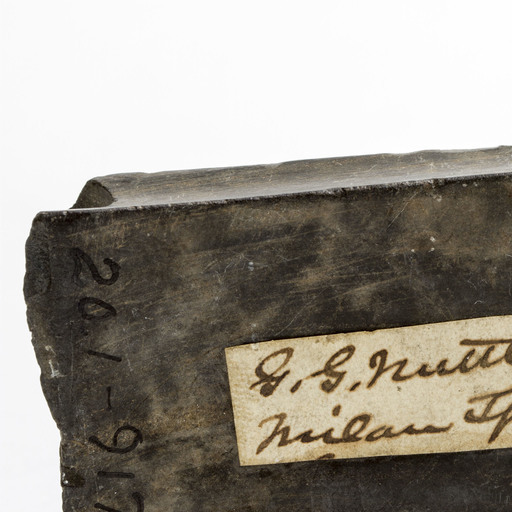 201-917
G. G. Nuttl
Milan Tp